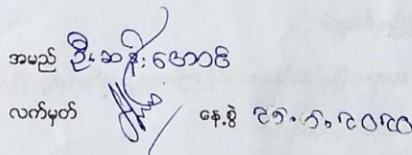 အမည် ဦးဆန်းအောင်
လက်မှတ် နေ့စွဲ ၎၁.၁.၂၀၂၀